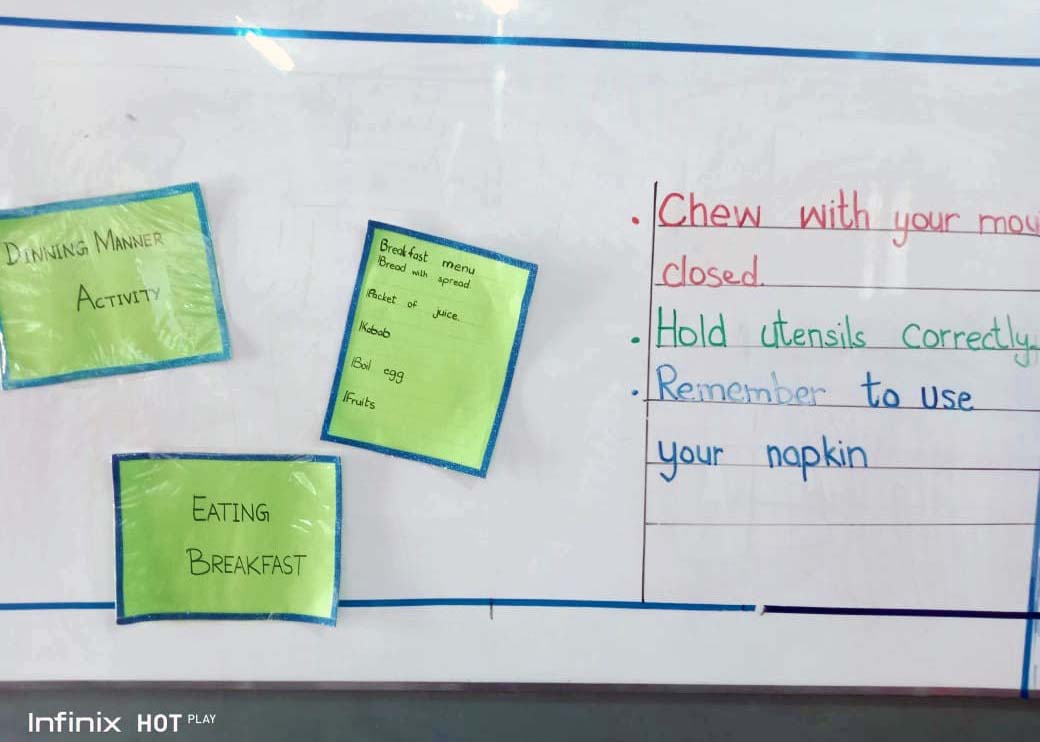 DINNING MANNER
ACTIVITY
Breakfast menu
1Bread with spread
1Packet of juice.
1Kabab
1Boil egg
1Fruits
EATING
BREAKFAST
. Chew with your mou
closed.
. Hold utensils correctly.
. Remember to use
your napkin
Infinix HOT PLAY